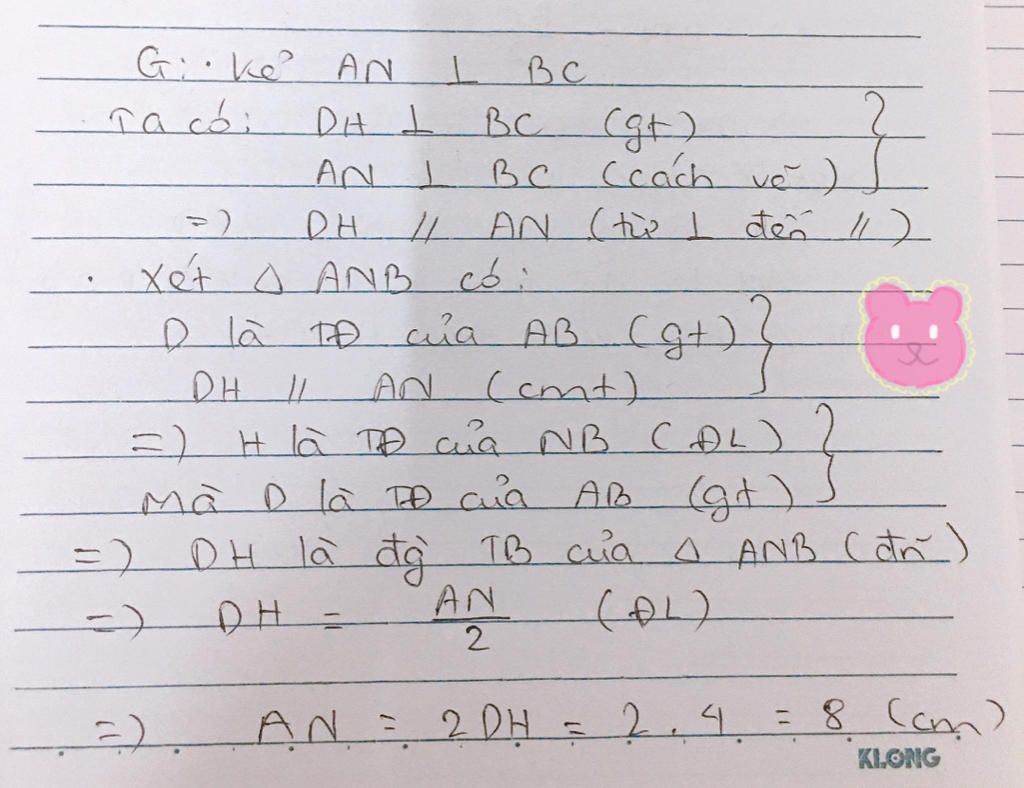 G: · Kẻ AN ⊥ BC
Ta có: DH ⊥ BC (gt)
AN ⊥ BC (cách vẽ)
=> DH // AN (từ ⊥ đến //)
· Xét Δ ANB có:
D là TĐ của AB (gt)
DH // AN (cmt)
=> H là TĐ của NB (ĐL)
Mà D là TĐ của AB (gt)
=> DH là đg TB của Δ ANB (đn)
=> DH = AN/2 (ĐL)
=> AN = 2DH = 2.4 = 8 (cm)
KLONG